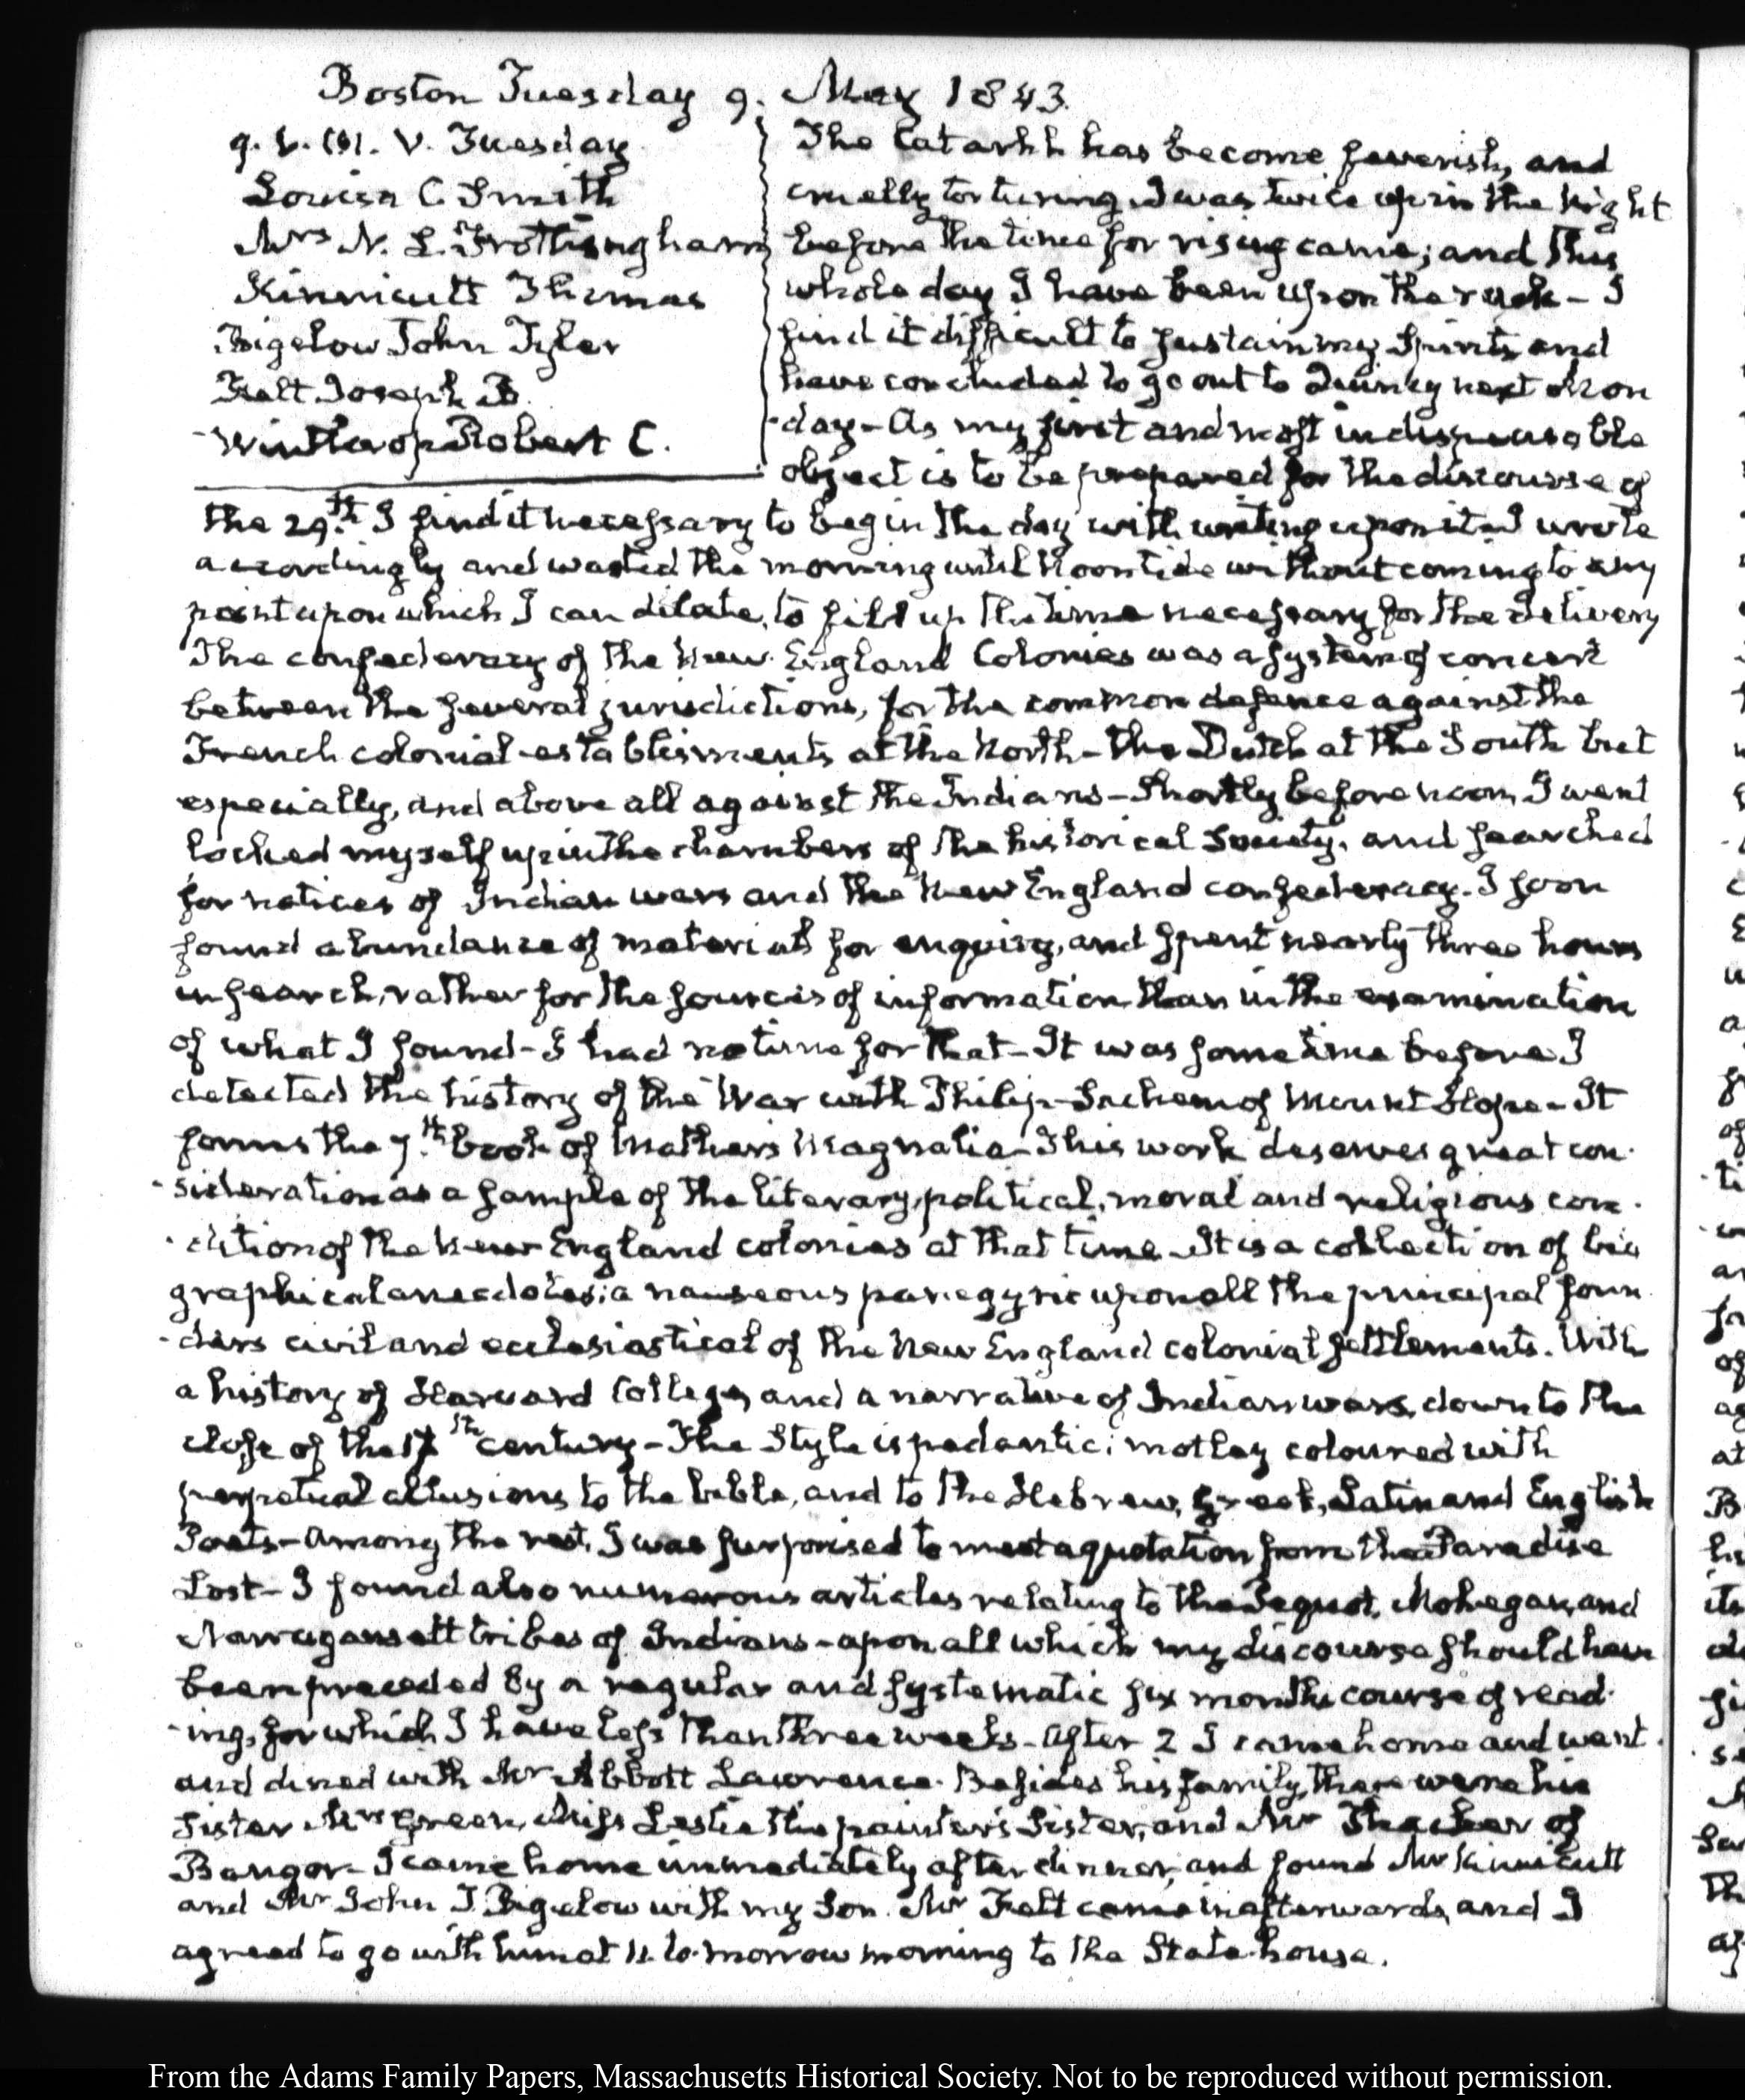 Boston Tuesday 9. May 1843.
9. V. Tuesday
Louisa C. Smith
Mrs N. L. Frothingham
Kinnicutt Thomas
Bigelow John Tyler
Felt Joseph B.
Winthrop Robert C.
The Catarrh has become feverish, and
cruelly torturing. I was twice up in the Night
before the time for rising came; and this
whole day I have been upon the rack - I
find it difficult to sustain my Spirits, and
have concluded to go out to Quincy next Mon
-day - As my first and most indispensable
object is to be prepared for the discourse of
the 29th. I find it necessary to begin the day with writing upon it - I wrote
accordingly and wasted the morning until Noontide without coming to any
point upon which I can dilate, to fill up the time necessary for the delivery
The confederacy of the New England Colonies was a system of concert
between the several jurisdictions, for the common defence against the
French colonial establisments at the North - the Dutch at the South but
especially, and above all against the Indians - Shortly before noon, I went
locked myself up in the chambers of the historical Society, and searched
for notices of Indian wars and the New England confederacy. I soon
found abundance of materials for enquiry, and spent nearly three hours
in search, rather for the sources of information than in the examination
of what I found - I had no time for that - It was some time before I
detected the history of the War with Philip - Sachem of Mount Hope - It
forms the 7th. book of Mathers Magnalia - This work deserves great con-
-sideration as a sample of the literary, political, moral and religious con-
-dition of the New England colonies at that time - It is a collection of bio
graphical anecdotes; a nauseous panegyric upon all the principal foun
-ders civil and ecclesiastical of the New England colonial settlements. With
a history of Harvard College, and a narrative of Indian wars, down to the
close of the 17th century - The Style is pedantic; motley coloured with
perpetual allusions to the bible, and to the Hebrew, Greek, Latin and English
Poets - Among the rest, I was surprised to meet a quotation from the Paradise
Lost - I found also numerous articles relating to the Pequot, Mohegan, and
Narragansett tribes of Indians - upon all which my discourse should have
been preceded by a regular and systematic six months course of read-
-ing, for which I have less than three weeks - After 2 I came home and went
and dined with Mr Abbott Lawrence. Besides his family, there were his
Sister Mrs Green, Miss Leslie the painter's Sister, and Mr Thacher of
Bangor - I came home immediately after dinner, and found Mr Kinnicutt
and Mr John T. Bigelow with my Son. Mr Felt came in afterwards, and I
agreed to go with him at 11. to-morrow morning to the State-house.
From the Adams Family Papers, Massachusetts Historical Society. Not to be reproduced without permission.